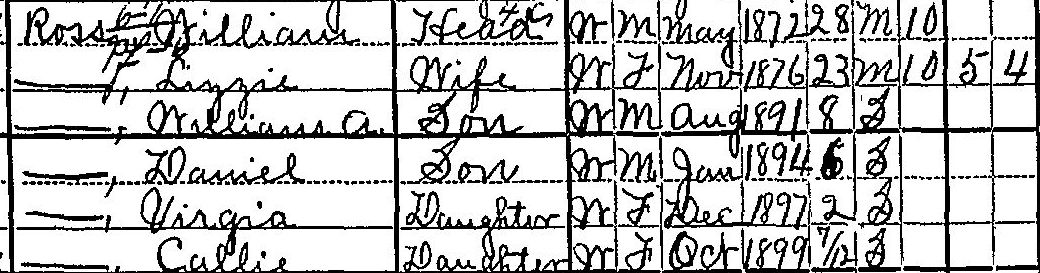 Ross William Head W M May 1872 28 M 10
—, Lizzie Wife W F Nov 1876 23 M 10 5 4
—, William A. Son W M Aug 1891 8 S
—, Daniel Son W M Jan 1894 6 S
—, Virgia Daughter W F Dec 1897 2 S
—, Callie Daughter W F Oct 1899 7/12 S